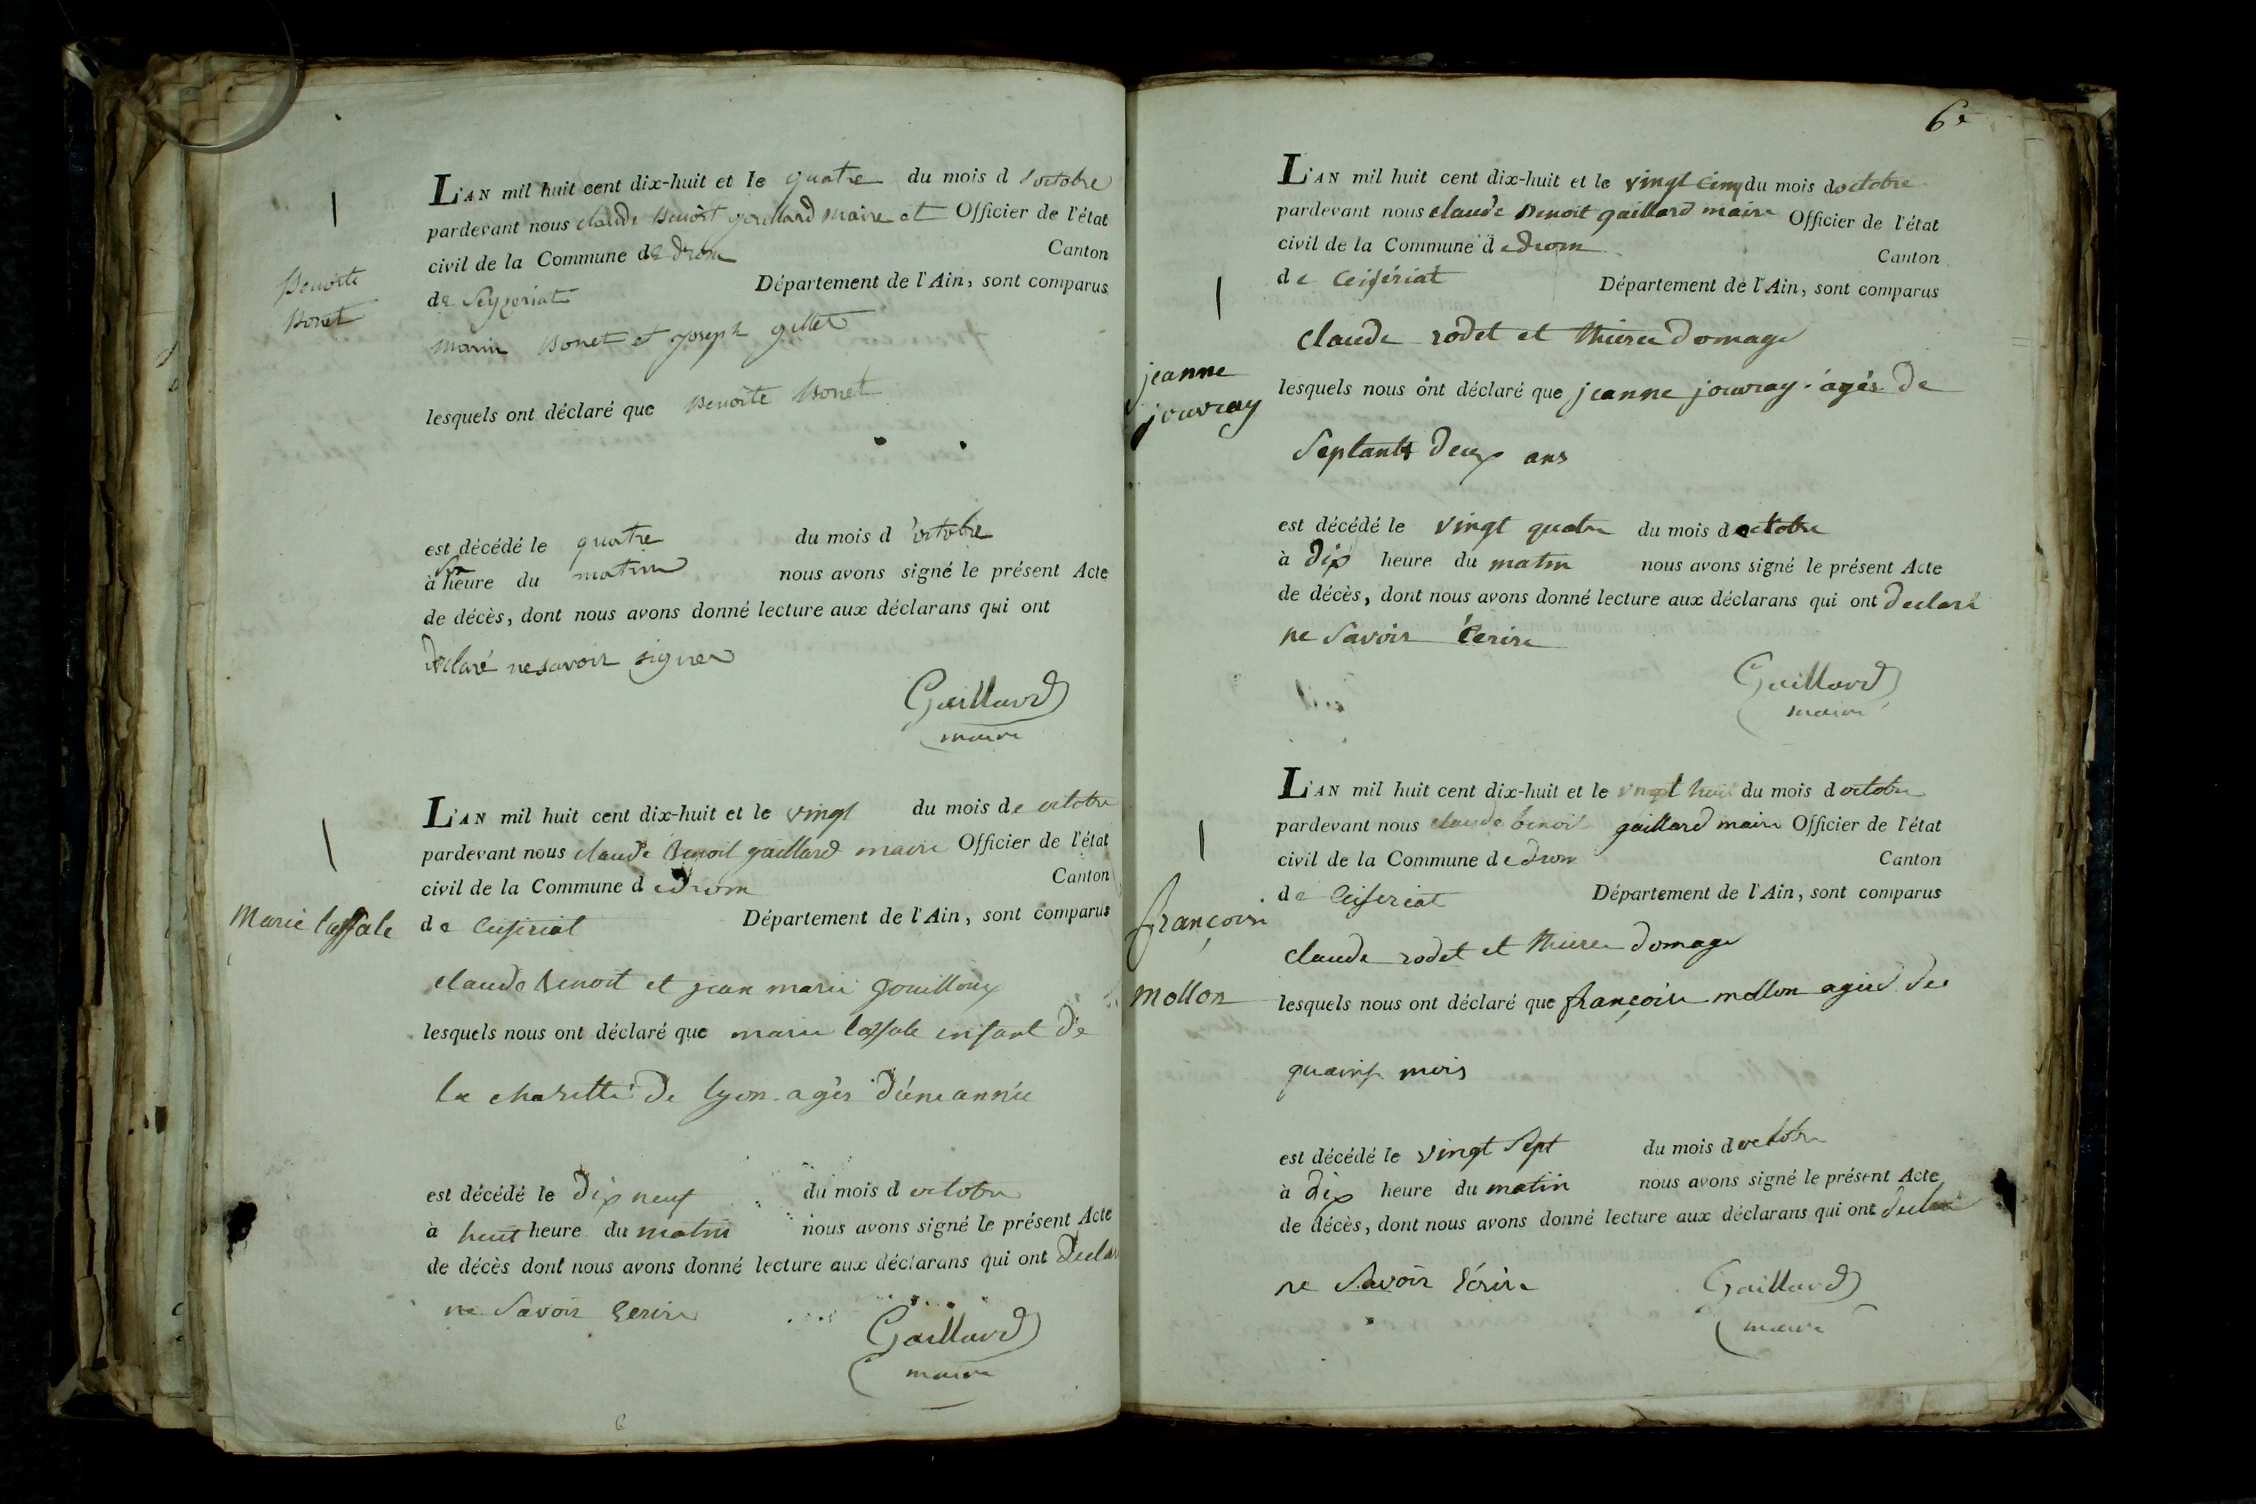 Benoite
Bonet
L'AN mil huit cent dix-huit et le quatre du mois d'octobre
pardevant nous claude benoit gaillard maire et Officier de l'état
civil de la Commune de drom Canton
de Seyzeriat Département de l'Ain, sont comparus
marin bonet et joseph gillet
lesquels ont déclaré que benoite bonet
est décédé le quatre du mois d'octobre
à heure du matin nous avons signé le présent Acte
de décès, dont nous avons donné lecture aux déclarans qui ont
déclaré ne savoir signer
Gaillard
maire
Marie lassale
L'AN mil huit cent dix-huit et le vingt du mois de octobre
pardevant nous claude benoit gaillard maire Officier de l'état
civil de la Commune de drom Canton
de Ceiseriat Département de l'Ain, sont comparus
claude benoit et jean marie gouilloux
lesquels nous ont déclaré que marie lassale enfant de
la charitté de lyon agés d'une année
est décédé le dix neuf du mois d octobre
à huit heure du matin nous avons signé le présent Acte
de décès dont nous avons donné lecture aux déclarans qui ont declar
ne savoir Ecrire
Gaillard
maire
6e
jeanne
jouvray
L'AN mil huit cent dix-huit et le vingt cinq du mois doctobre
pardevant nous claude benoit gaillard maire Officier de l'état
civil de la Commune de drom Canton
de Ceiseriat Département de l'Ain, sont comparus
claude rodet et domage
lesquels nous ont déclaré que jeanne jouvray agés de
Septante deux ans
est décédé le vingt quatre du mois doctobre
à dix heure du matin nous avons signé le présent Acte
de décès, dont nous avons donné lecture aux déclarans qui ont declaré
ne savoir écrire
Gaillard
maire
françoise
mollon
L'AN mil huit cent dix-huit et le vingt huit du mois doctobre
pardevant nous claude benoit gaillard maire Officier de l'état
civil de la Commune de drom Canton
de Ceiseriat Département de l'Ain, sont comparus
claude rodet et domage
lesquels nous ont déclaré que françoise mollon de
mois
est décédé le vingt sept du mois doctobre
à dix heure du matin nous avons signé le présent Acte
de décès, dont nous avons donné lecture aux déclarans qui ont declaré
ne savoir Ecrire
Gaillard
maire